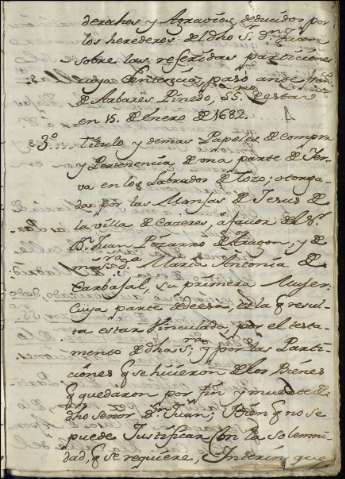 derechos y Agravios, deducidos por
los herederos de dho S.r d.n Juan
sobre las referidas particiones
cuya Sentencia, pasó ante
de Aabares Pinedo, SS.no de esta
en 15. de Enero de 1682.
3º Titulo y demas Papeles de compra
y Pertenencia de una parte de Yer-
va en los Labrados de Tozo; otorga-
da por las Monjas de Jesus de
la villa de Caceres, a favor de d.n
D.n Juan Pizarro de Aragon, y de
D.a Maria Antonia de
Carbajal, su primera Muger,
cuya parte de Yerva, es la q resul-
ta estar Vinculada, por el testa-
mento de dha S.ra y por las Parti-
ciones q se hicieron de los Bienes
q quedaron por fin y muerte de
dho señor D.n Juan; Y con q no se
puede Justificar con la solemni-
dad, q se requiere, Interin que